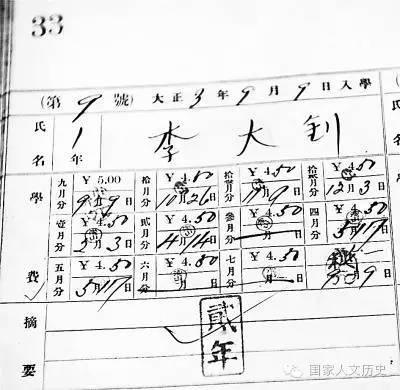 33
(第 9 號) 大正 3 年 9 月 9 日入學
氏名 1年 李大釗
學費
九月分 ¥5.00 9月9日 拾月分 10月26日 拾壹月分 ¥4.50 11月9日 拾貳月分 ¥4.50 12月3日
壹月分 ¥4.50 月3日 貳月分 ¥4.50 4月14日 參月分 ¥4.50 月日 四月分 ¥4.50 5月17日
五月分 ¥4.50 5月17日 六月分 月日 七月分 ¥4.50 月日 9日
摘要
貳年
国家人文历史